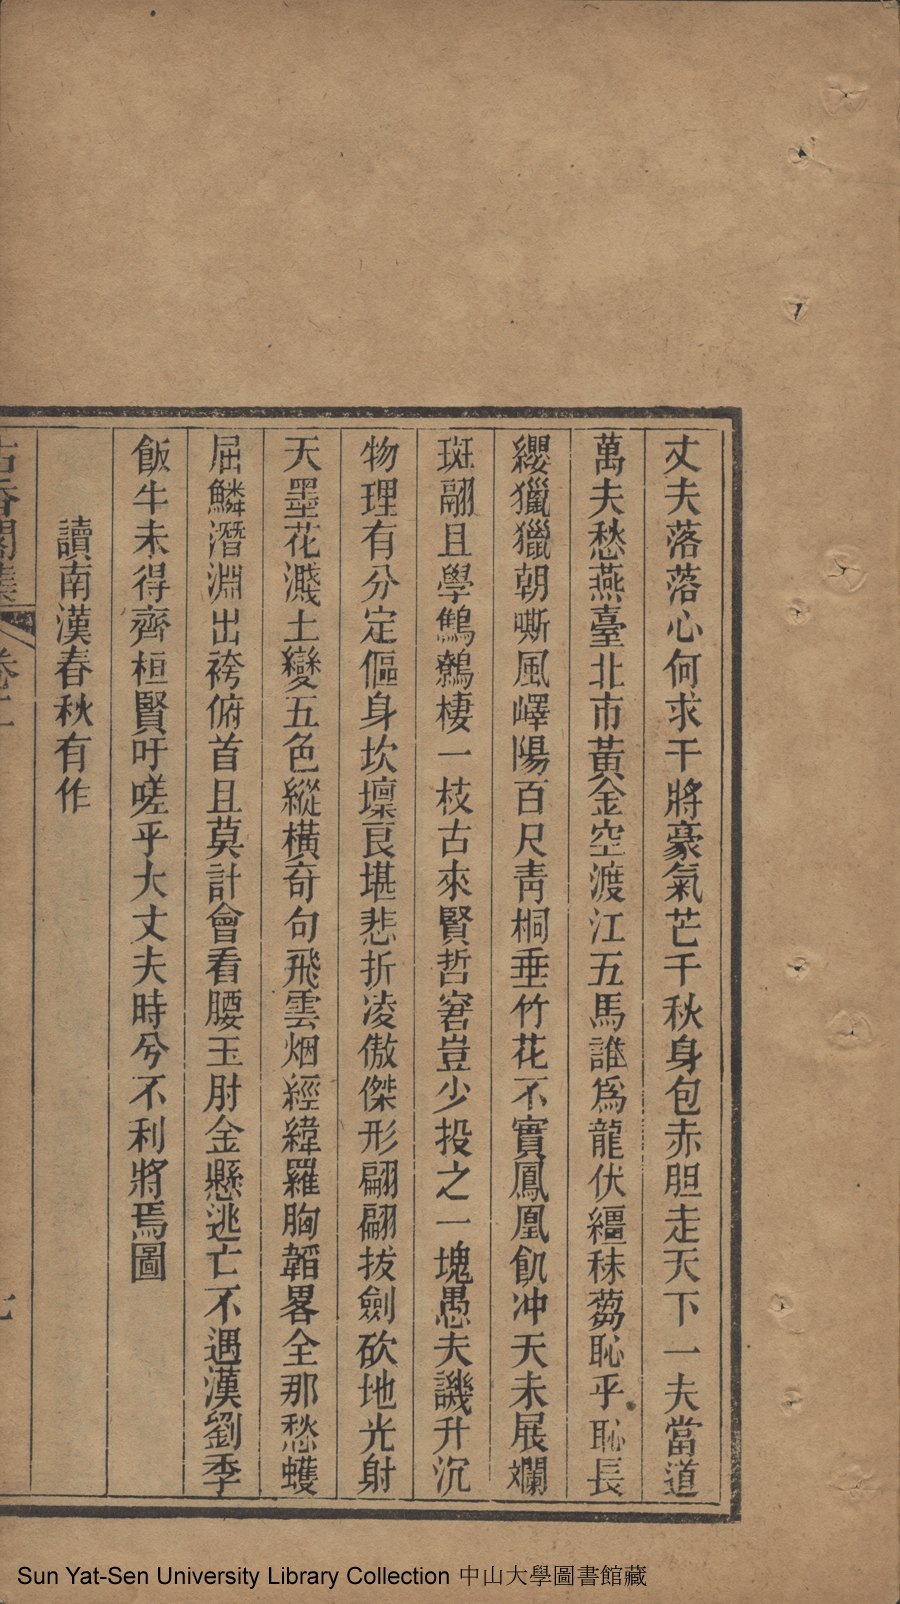 丈夫落落心何求干將豪氣芒千秋身包赤胆走天下一夫當道
萬夫愁燕臺北市黃金空渡江五馬誰爲龍伏繮秣蒭恥乎恥長
纓獵獵朝嘶風嶧陽百尺靑桐垂竹花不實鳳凰飢冲天未展斕
斑翮且學鷦鷯棲一枝古來賢哲窘豈少投之一塊愚夫譏升沉
物理有分定傴身坎壈良堪悲折凌傲傑形翩翩拔劍砍地光射
天墨花濺土變五色縱橫奇句飛雲烟經緯羅胸韜畧全那愁蠖
屈鱗潛淵出袴俯首且莫計會看腰玉肘金懸逃亡不遇漢劉季
飯牛未得齊桓賢吁嗟乎大丈夫時兮不利將焉圖
讀南漢春秋有作
古香閣集 卷二 七
Sun Yat-Sen University Library Collection 中山大學圖書館藏